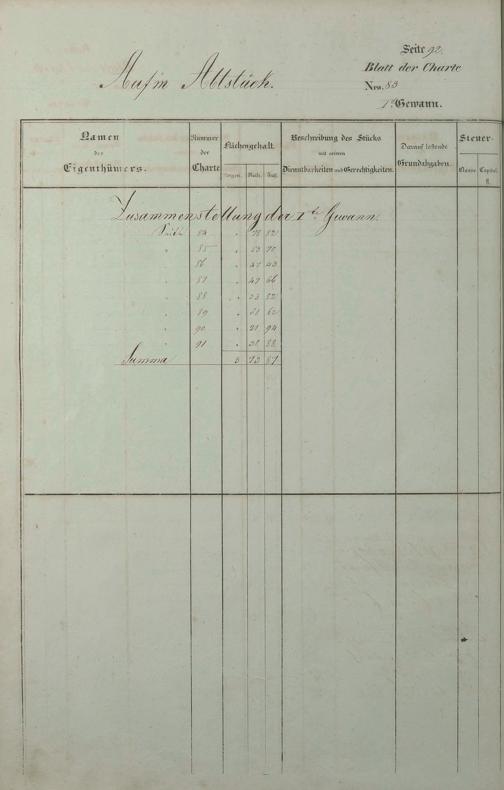 Seite 92.
Blatt der Charte
Nro. 83
1te Gewann.
Auf'm Altstück.
Namen
des
Eigenthümers.
Nummer
der
Charte
Flächengehalt.
Morgen. Ruth. Fuß.
Beschreibung des Stücks
mit seinen
Dienstbarkeiten und Gerechtigkeiten.
Darauf lastende
Grundabgaben.
Steuer-
Klasse Capital.
fl.
Zusammenstellung der 1te Gewann.
Seite 84 " 78 82
" 85 " 53 70
" 86 " 47 43
" 87 " 47 66
" 88 " 53 82
" 89 " 51 62
" 90 " 21 94
" 91 " 88
Summa 3 73 87